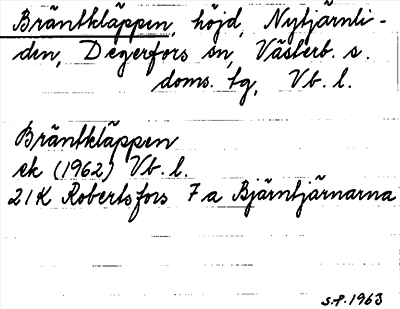 Bräntkläppen, höjd, Nytjärnli-
den, Degerfors sn, Västerb. s.
doms. tg, Vb. l.
Bräntkläppen
ek (1962) Vb. l.
21K Robertsfors 7a Bjärntjärnarna
S.P. 1963